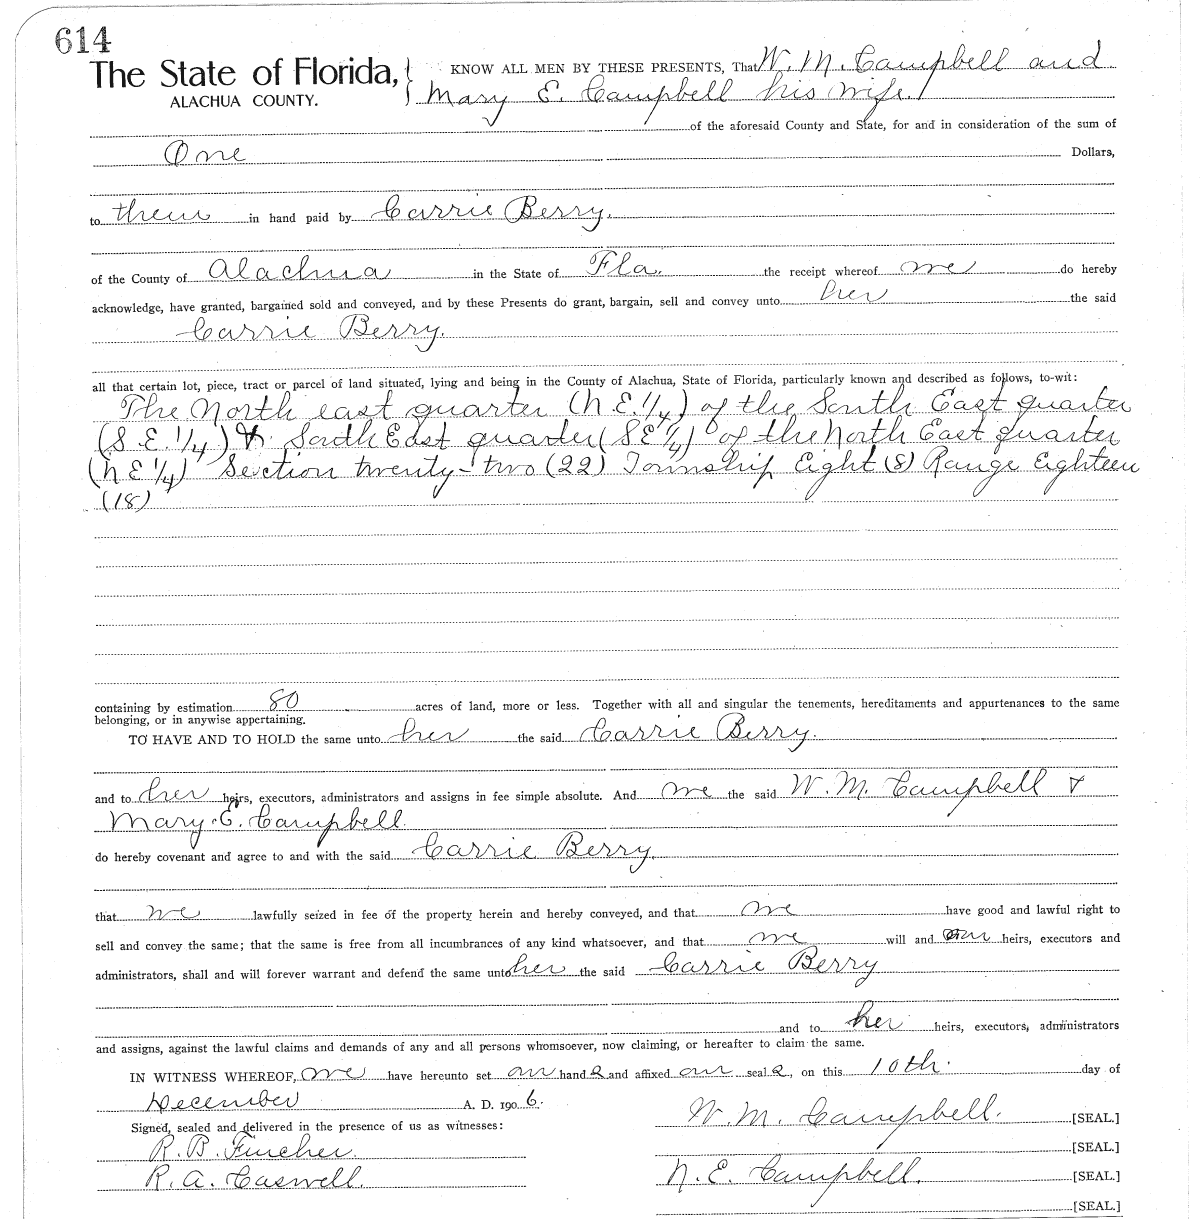 614
The State of Florida,
ALACHUA COUNTY.
KNOW ALL MEN BY THESE PRESENTS, That W. M. Campbell and
Mary E. Campbell his wife
of the aforesaid County and State, for and in consideration of the sum of
One Dollars,
to them in hand paid by Carrie Berry.
of the County of Alachua in the State of Fla. the receipt whereof we do hereby
acknowledge, have granted, bargained sold and conveyed, and by these Presents do grant, bargain, sell and convey unto her the said
Carrie Berry.
all that certain lot, piece, tract or parcel of land situated, lying and being in the County of Alachua, State of Florida, particularly known and described as follows, to-wit:
The North east quarter (N.E.1/4) of the South East quarter
(S.E.1/4) & South East quarter (SE1/4) of the North East quarter
(NE1/4) Section twenty-two (22) Township Eight (8) Range Eighteen
(18)
containing by estimation 80 acres of land, more or less. Together with all and singular the tenements, hereditaments and appurtenances to the same
belonging, or in anywise appertaining.
TO HAVE AND TO HOLD the same unto her the said Carrie Berry.
and to her heirs, executors, administrators and assigns in fee simple absolute. And we the said W. M. Campbell &
Mary E. Campbell
do hereby covenant and agree to and with the said Carrie Berry.
that we lawfully seized in fee of the property herein and hereby conveyed, and that we have good and lawful right to
sell and convey the same; that the same is free from all incumbrances of any kind whatsoever, and that we will and our heirs, executors and
administrators, shall and will forever warrant and defend the same unto her the said Carrie Berry
and to her heirs, executors, administrators
and assigns, against the lawful claims and demands of any and all persons whomsoever, now claiming, or hereafter to claim the same.
IN WITNESS WHEREOF, we have hereunto set our hands and affixed our seals, on this 10th. day of
December A. D. 1906.
Signed, sealed and delivered in the presence of us as witnesses:
W. M. Campbell. [SEAL.]
R. B. Fincher. [SEAL.]
R. A. Caswell. N. E. Campbell. [SEAL.]
[SEAL.]